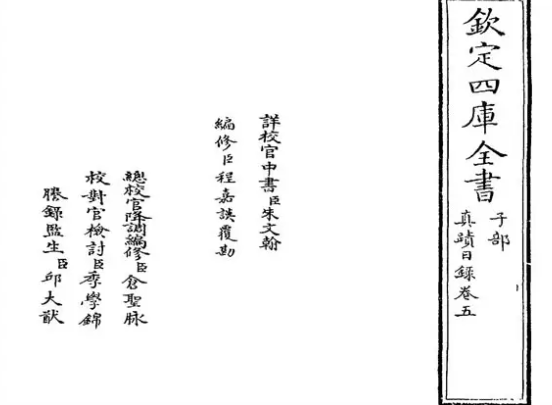 欽定四庫全書
子部
真蹟日録卷五
詳校官中書臣朱文翰
編修臣程嘉謨覆勘
總校官降調編修臣倉聖脉
校對官檢討臣季學錦
謄録監生臣邱大猷